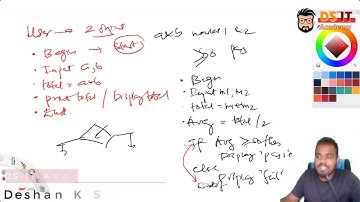 User → 2 input
• Begin → Start
• Input a, b
• total = a+b
• print total / Display total
• End.
a, b
• Begin
• Input m1, m2
• total = m1+m2
• Avg = total / 2
if Avg ≥ 50 then
Display 'pass'
else
Display 'fail'
DSJT
Academy
Deshan K S